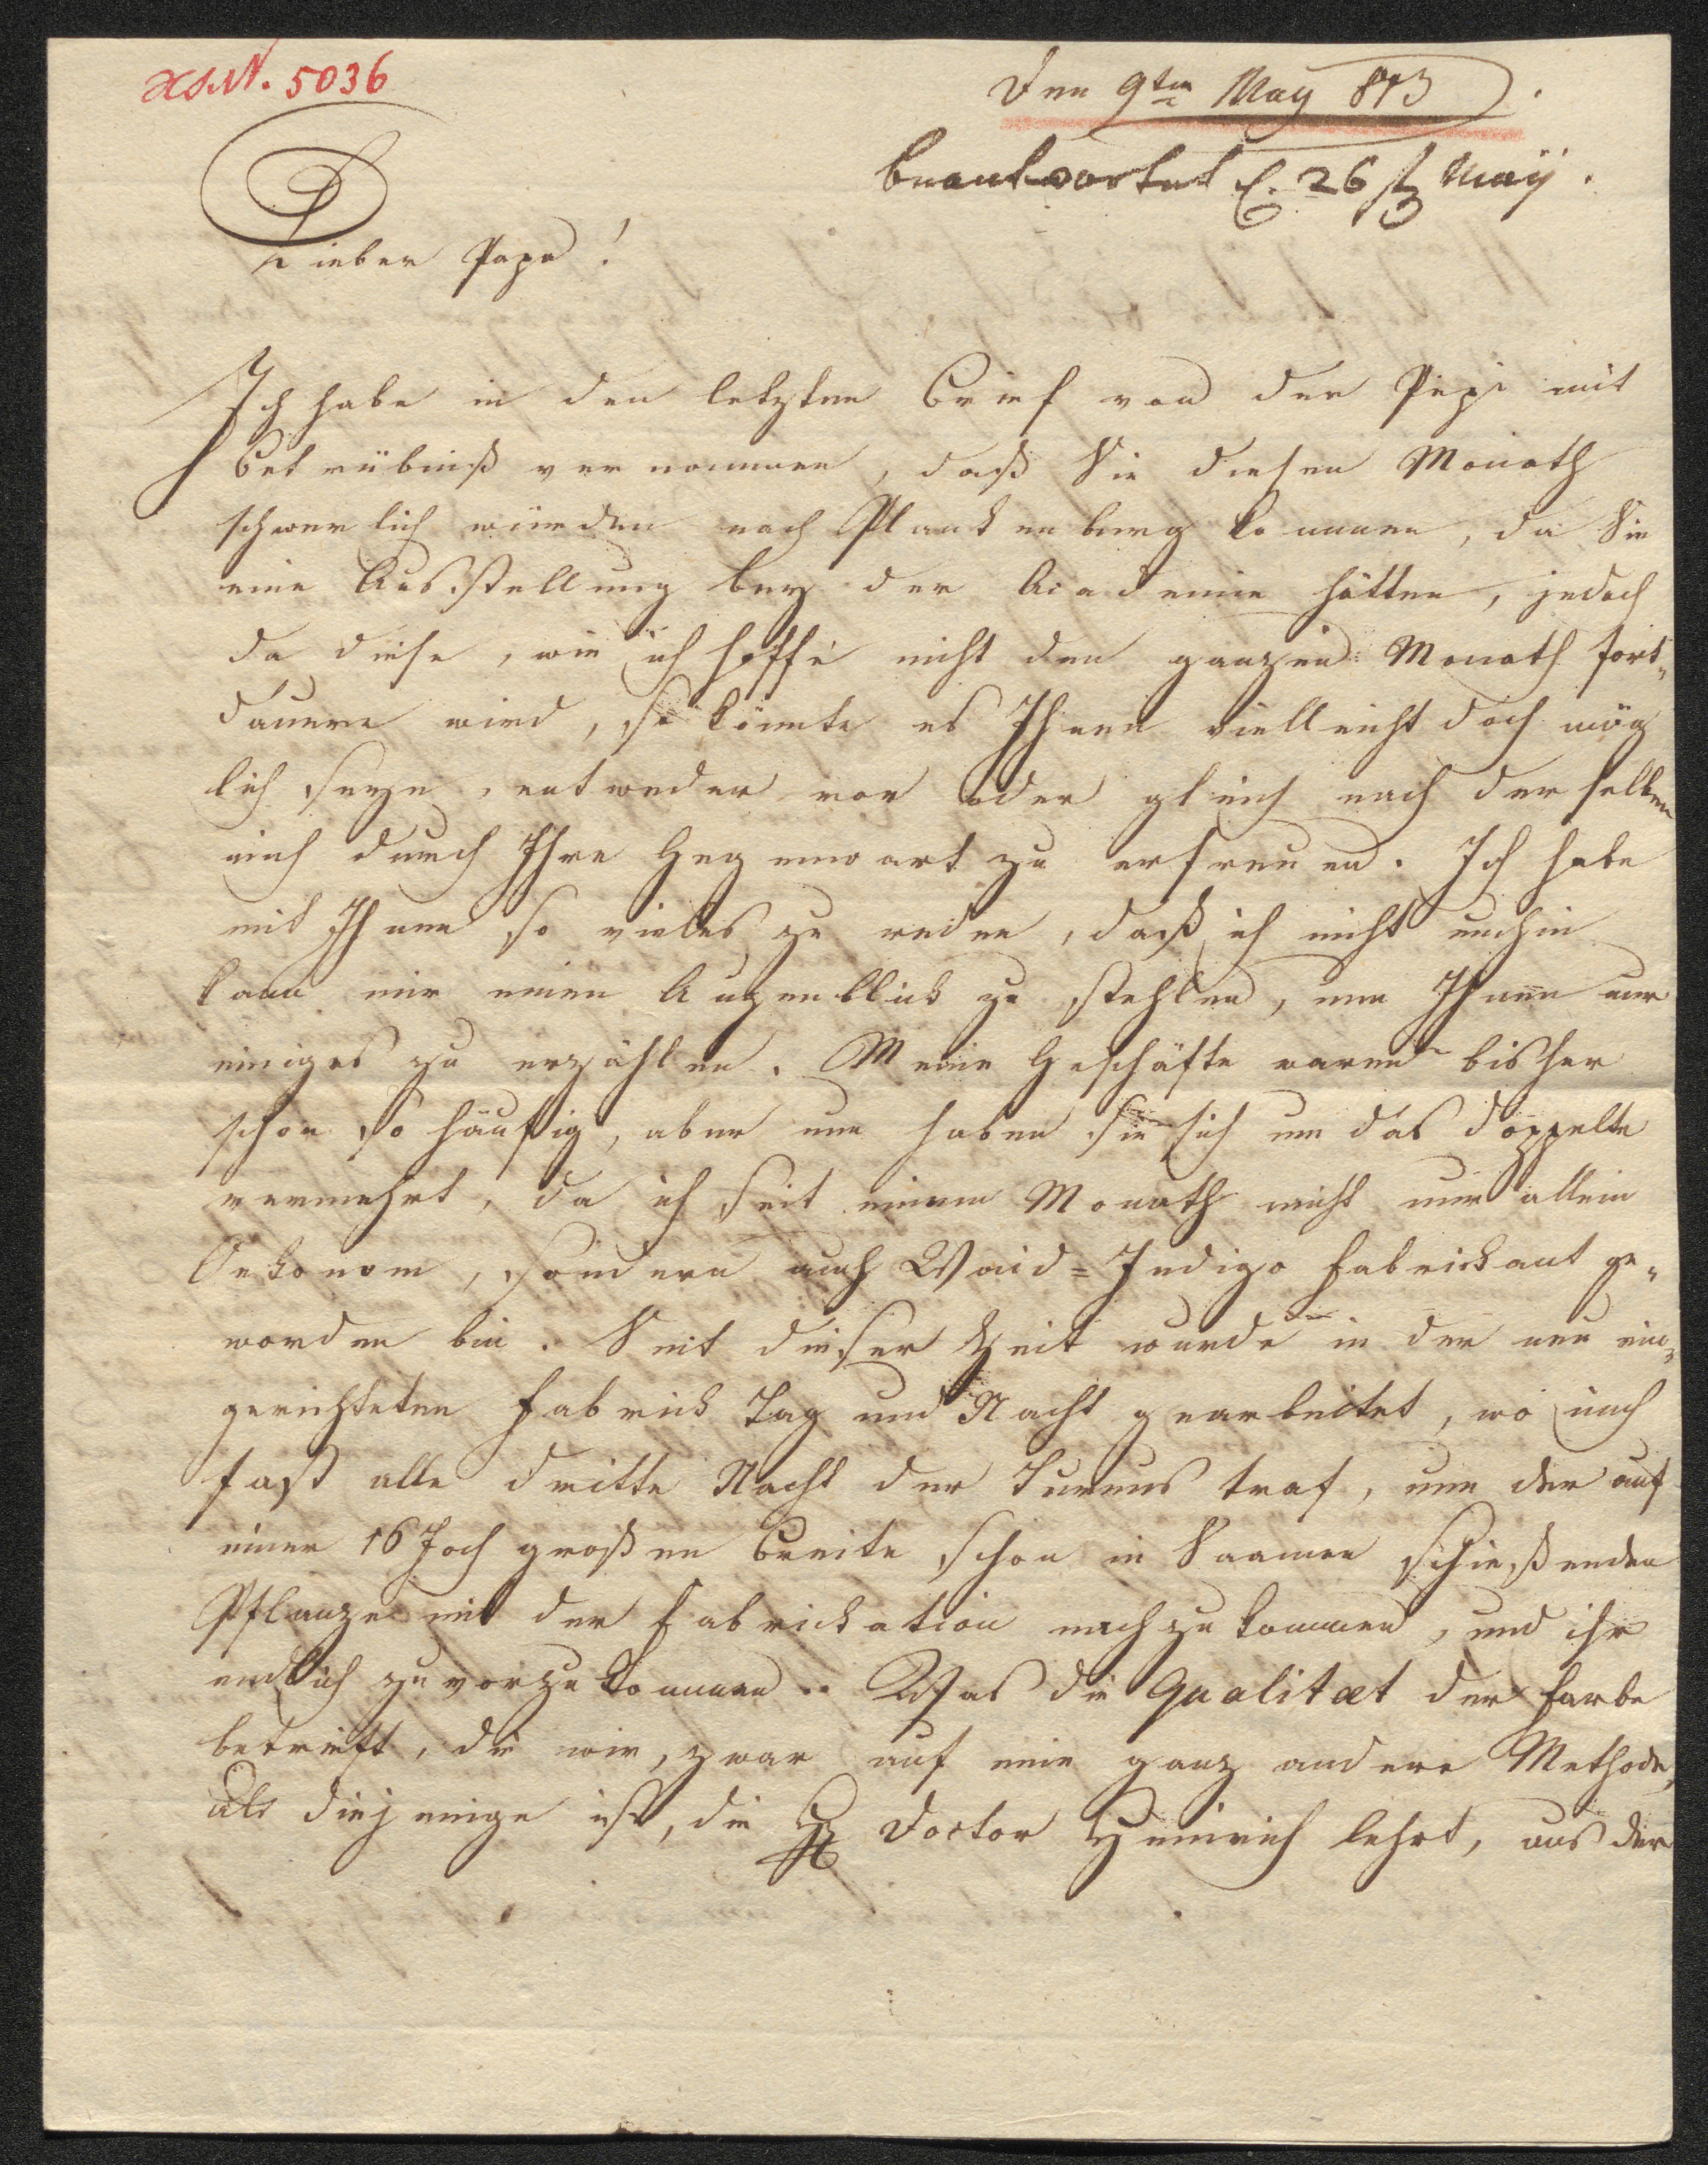 HS.N. 5036
Den 9ten May 813.
beantwortet d. 26ten Maÿ.
Lieber Papa!
Ich habe in den letzten Brief von der Pepi mit
Betrübniß vernommen, daß Sie diesen Monath
schwerlich würden nach Plankenberg kommen, da Sie
eine Ausstellung bey der Academie hätten, jedoch
da diese, wie ich hoffe nicht den ganzen Monath fort-
dauern wird, so könnte es Ihnen vielleicht doch mög
lich seyn, entweder vor oder gleich nach derselben
mich durch Ihre Gegenwart zu erfreuen. Ich habe
mit Ihnen so vieles zu reden, daß ich nicht umhin
kann mir einen Augenblick zu stehlen, um Ihnen nur
einiges zu erzählen. Meine Geschäfte waren bisher
schon so häufig, aber nun haben sie sich um das doppelte
vermehrt, da ich seit einem Monath nicht nur allein
Oekonom, sondern auch Waid-Indigo Fabrickant ge-
worden bin. Seit dieser Zeit wurde in der neu ein-
gerichteten Fabrick Tag und Nacht gearbeitet, wo mich
fast alle dritte Nacht der Turnus traf, um der auf
einer 16 Joch großen Breite schon in Saamen schießenden
Pflanze mit der Fabrickation nachzukommen, und ihr
endlich zuvorzukommen. Was die Qualitæt der Farbe
betrifft, die wir, zwar auf eine ganz andere Methode,
als diejenige ist, die H Doctor Heinrich lehrt, aus der